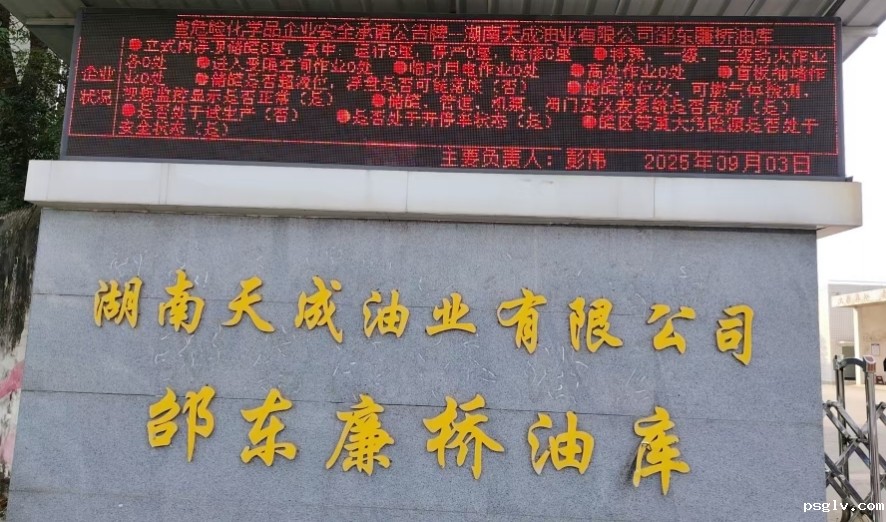 当危险化学品企业安全承诺公告牌--湖南天成油业有限公司邵东廉桥油库
企业状况
立式内浮顶储罐8座,其中:运行8座,停产0座,检修0座 特殊、一级、二级动火作业
各0处 进入受限空间作业0处 临时用电作业0处 高处作业0处 盲板抽堵作
业0处 储罐是否超液位、浮盘是否可能落底(否) 储罐液位仪、可燃气体检测、
视频监控显示是否正常(是) 储罐、管道、机泵、阀门及仪表系统是否完好(是)
是否处于试生产(否) 是否处于开停车状态(是) 罐区等重大危险源是否处于
安全状态(是)
主要负责人:彭伟 2025年09月03日
湖南天成油业有限公司
邵东廉桥油库
psglv.com